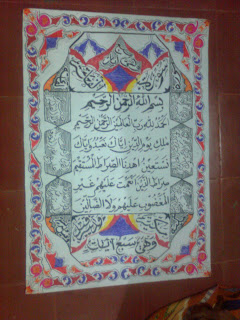 بسم الله الرحمن الرحيم
الحمد لله رب العالمين الرحمن الرحيم
ملك يوم الدين إياك نعبد وإياك
نستعين اهدنا الصراط المستقيم
صراط الذين أنعمت عليهم غير
المغضوب عليهم ولا الضالين
وهي سبع آيات